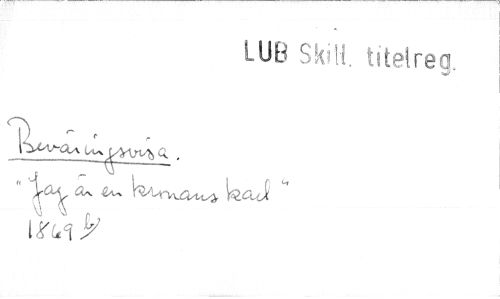 LUB Skill. titelreg.
Beväringsvisa.
"Jag är en kronans karl"
1869 b)